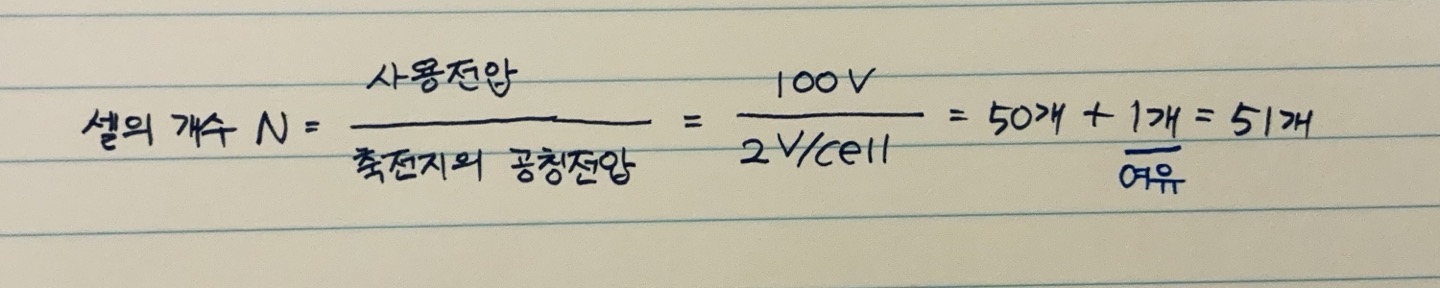 셀의 개수 N = 사용전압 / 축전지의 공칭전압 = 100V / 2V/cell = 50개 + 1개 = 51개
여유